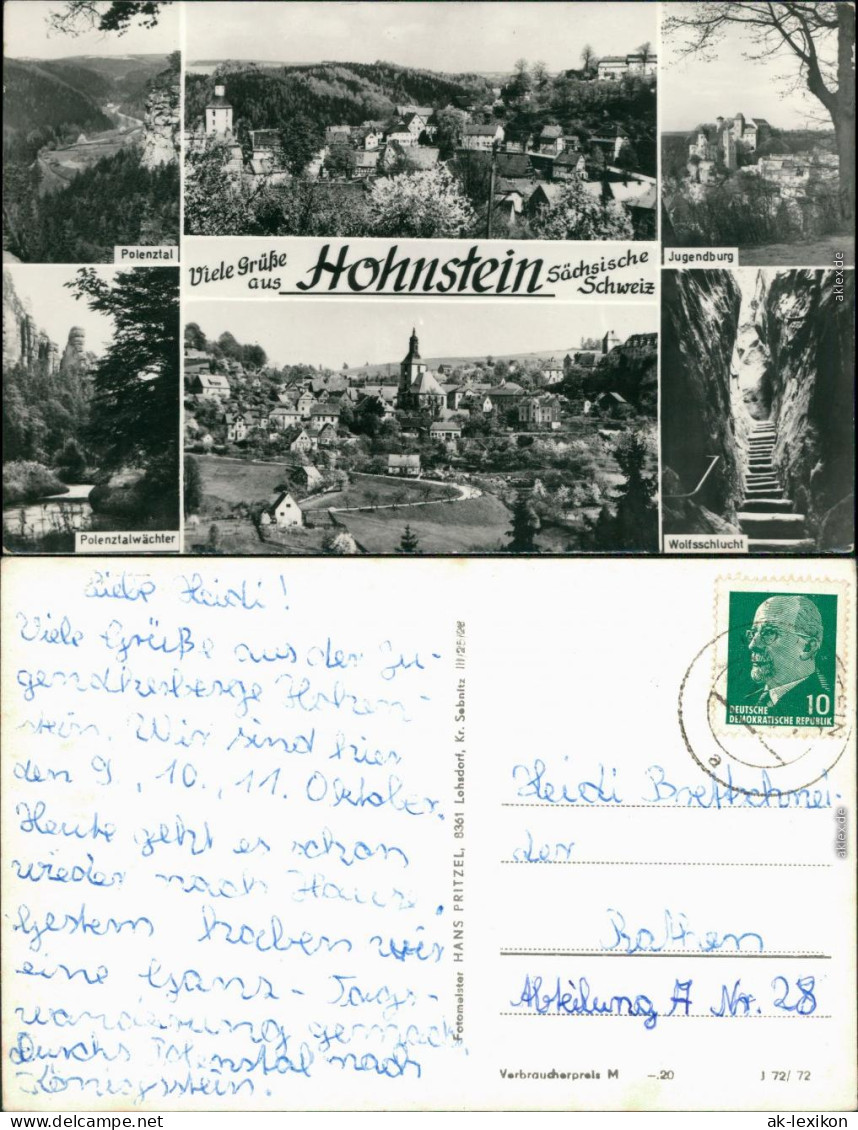 Polenztal
Jugendburg
Viele Grüße
aus
Hohnstein
Sächsische
Schweiz
Polenztalwächter
Wolfsschlucht
Liebe Heidi!
Viele Grüße aus der Ju-
gendherberge Hohen-
stein. Wir sind hier
den 9., 10., 11. Oktober.
Heute geht es schon
wieder nach Hause.
Gestern haben wir
eine Ganz-Tags-
wanderung gemacht.
Durchs Polenztal nach
Königsstein.
Fotomeister HANS PRITZEL, 8361 Lohsdorf, Kr. Sebnitz III/26/26
10
DEUTSCHE
DEMOKRATISCHE REPUBLIK
a
Heidi Brettschnei-
der
Rathen
Abteilung A Nr. 28
Verbraucherpreis M -.20 J 72/72
aklex.de
aklex.de
www.ak-ansichtskarten.de
ak-lexikon